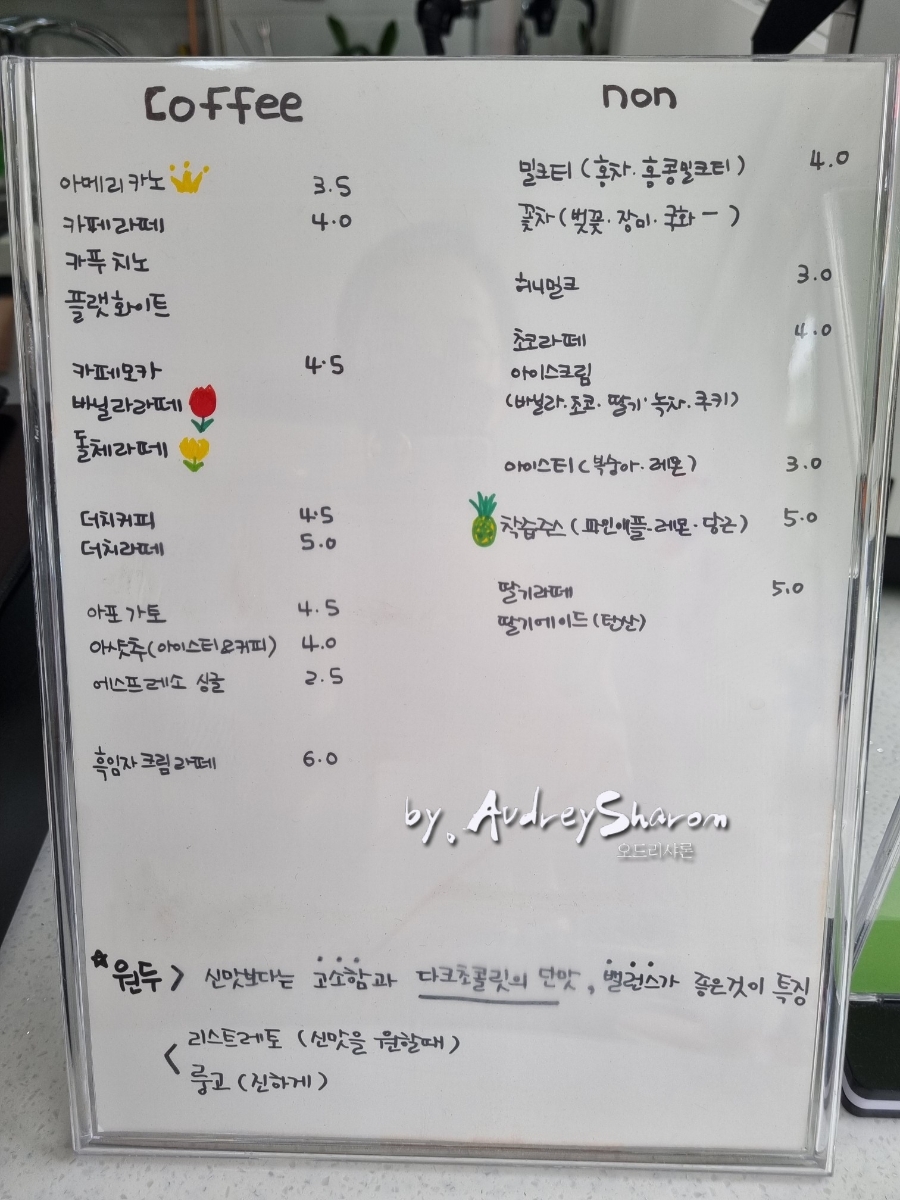 Coffee
아메리카노 3.5
카페라떼 4.0
카푸치노
플랫화이트
카페모카 4.5
바닐라라떼
돌체라떼
더치커피 4.5
더치라떼 5.0
아포가토 4.5
아샷추(아이스티&커피) 4.0
에스프레소 싱글 2.5
흑임자크림라떼 6.0
non
밀크티 (홍차·홍콩밀크티) 4.0
꽃차 (벚꽃·장미·국화 ㅡ)
허니밀크 3.0
초코라떼 4.0
아이스크림
(바닐라·초코·딸기·녹차·쿠키)
아이스티 (복숭아·레몬) 3.0
착즙주스 (파인애플·레몬·당근) 5.0
딸기라떼 5.0
딸기에이드 (탄산)
by. AudreySharon
오드리샤론
☆원두> 신맛보다는 고소함과 다크초콜릿의 단맛, 밸런스가 좋은것이 특징
< 리스트레토 (신맛을 원할때)
룽고 (진하게)